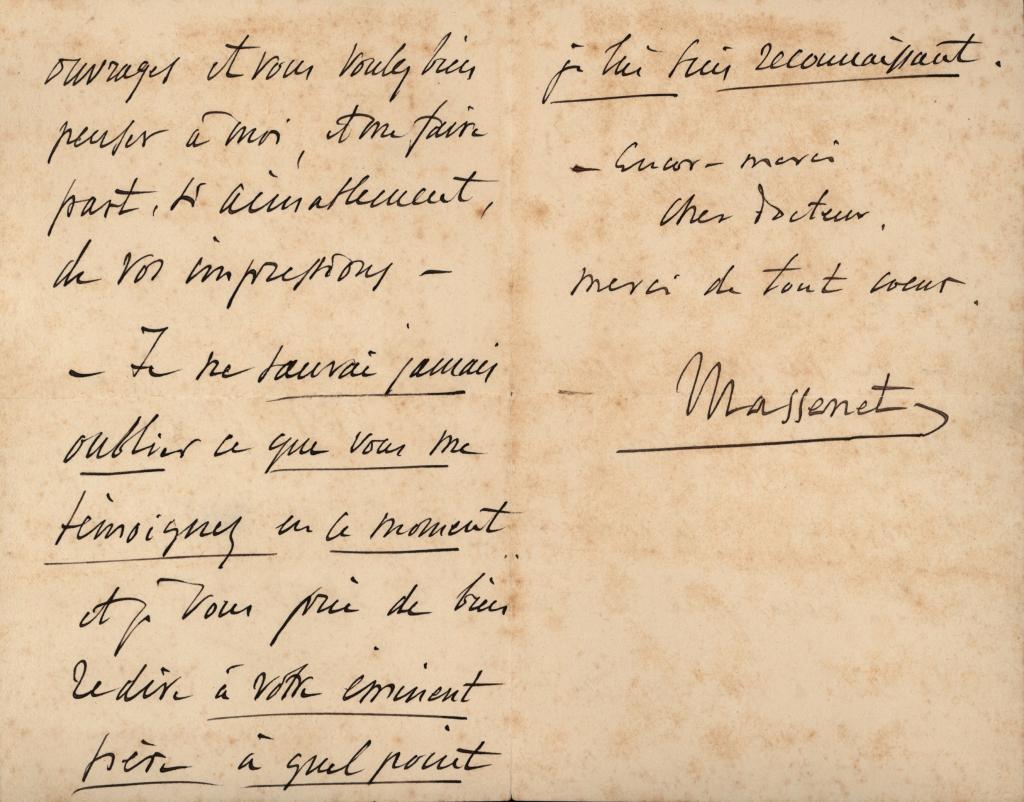 ouvrages et vous voulez bien
penser à moi, et me faire
part, si aimablement,
de vos impressions —
— Je ne saurai jamais
oublier ce que vous me
témoignez en ce moment
et je vous prie de bien
redire à votre éminent
frère à quel point
je lui suis reconnaissant.
— Encor — merci
cher Docteur,
merci de tout coeur.
Massenet